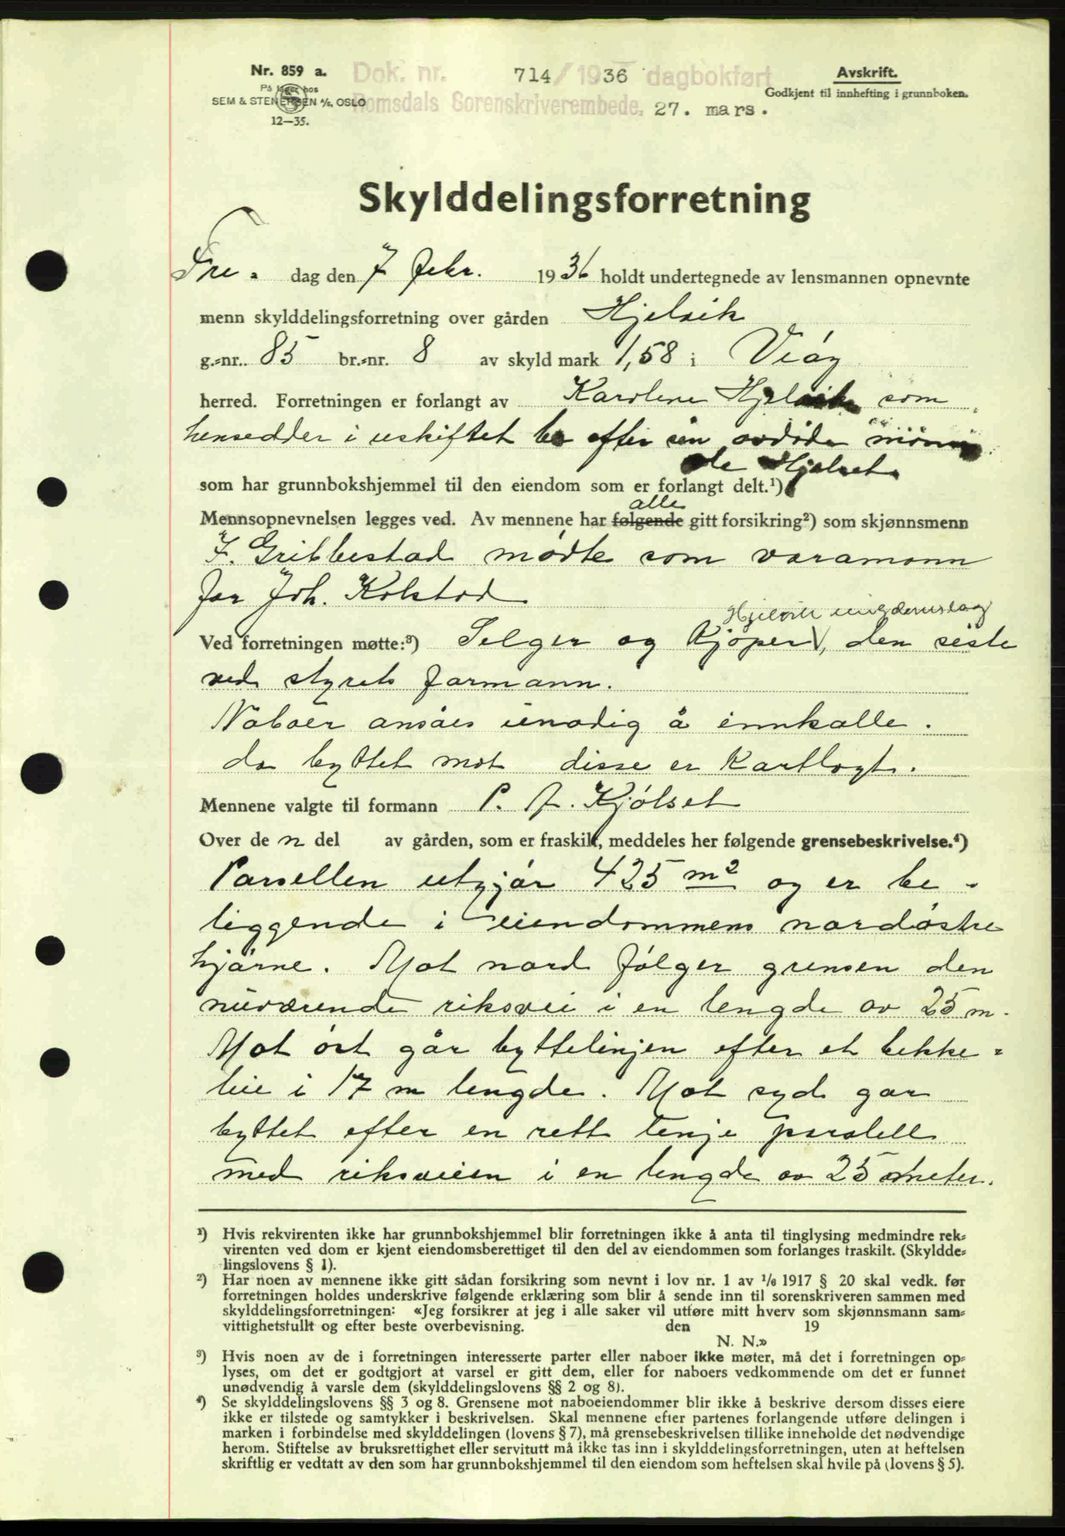 Nr. 859 a.
På lager hos
SEM & STENERSEN A/S, OSLO
12—35.
Dok. nr. 714/1936 dagbokført
Romsdals Sorenskriverembede, 27. mars.
Avskrift.
Godkjent til innhefting i grunnboken.
Skylddelingsforretning
Fre. dag den 7 febr. 1936 holdt undertegnede av lensmannen opnevnte
menn skylddelingsforretning over gården Hjelvik
g.-nr. 85 br.-nr. 8 av skyld mark 1,58 i Veøy
herred. Forretningen er forlangt av Karoline Hjelvik som
hensedder i uskiftet bo efter sin avdøde mann
Hjelset
som har grunnbokshjemmel til den eiendom som er forlangt delt.¹)
alle
Mennsopnevnelsen legges ved. Av mennene har følgende gitt forsikring²) som skjønnsmenn
F. Gribbestad mødte som varamann
for Joh. Kolstad
Hjelvik ungdomslag
Ved forretningen møtte:³) Selger og Kjøper V, den siste
ved styrets formann.
Naboer ansåes unødig å innkalle.
da byttet mot disse er kartlagt.
Mennene valgte til formann P. A. Kjølset
Over de n del av gården, som er fraskilt, meddeles her følgende grensebeskrivelse.⁴)
Parsellen utgjør 425 m² og er be-
liggende i eiendommens nordøstre
hjørne. Mot nord følger grensen den
nuværende riksvei i en lengde av 25 m.
Mot øst går byttelinjen efter et bekke-
leie i 17 m lengde. Mot syd gar
byttet efter en rett linje paralell
med riksveien i en lengde av 25 meter.
¹) Hvis rekvirenten ikke har grunnbokshjemmel blir forretningen ikke å anta til tinglysing medmindre rek-
virenten ved dom er kjent eiendomsberettiget til den del av eiendommen som forlanges fraskilt. (Skyldde-
lingslovens § 1).
²) Har noen av mennene ikke gitt sådan forsikring som nevnt i lov nr. 1 av 1/6 1917 § 20 skal vedk. før
forretningen holdes underskrive følgende erklæring som blir å sende inn til sorenskriveren sammen med
skylddelingsforretningen: «Jeg forsikrer at jeg i alle saker vil utføre mitt hverv som skjønnsmann sam-
vittighetsfullt og efter beste overbevisning. den 19
N. N.»
³) Hvis noen av de i forretningen interesserte parter eller naboer ikke møter, må det i forretningen op-
lyses, om det er godtgjort at varsel er gitt dem, eller for naboers vedkommende om det er funnet
unødvendig å varsle dem (skylddelingslovens §§ 2 og 8).
⁴) Se skylddelingslovens §§ 3 og 8. Grensene mot naboeiendommer blir ikke å beskrive dersom disses eiere
ikke er tilstede og samtykker i beskrivelsen. Skal mennene efter partenes forlangende utføre delingen i
marken i forbindelse med skylddelingen (lovens § 7), må grensebeskrivelsen tillike inneholde det nødvendige
herom. Stiftelse av bruksrettighet eller servitutt må ikke tas inn i skylddelingsforretningen, uten at heftelsen
skriftlig er vedtatt av den som har grunnbokshjemmel til den eiendom som heftelsen skal hvile på (lovens § 5).